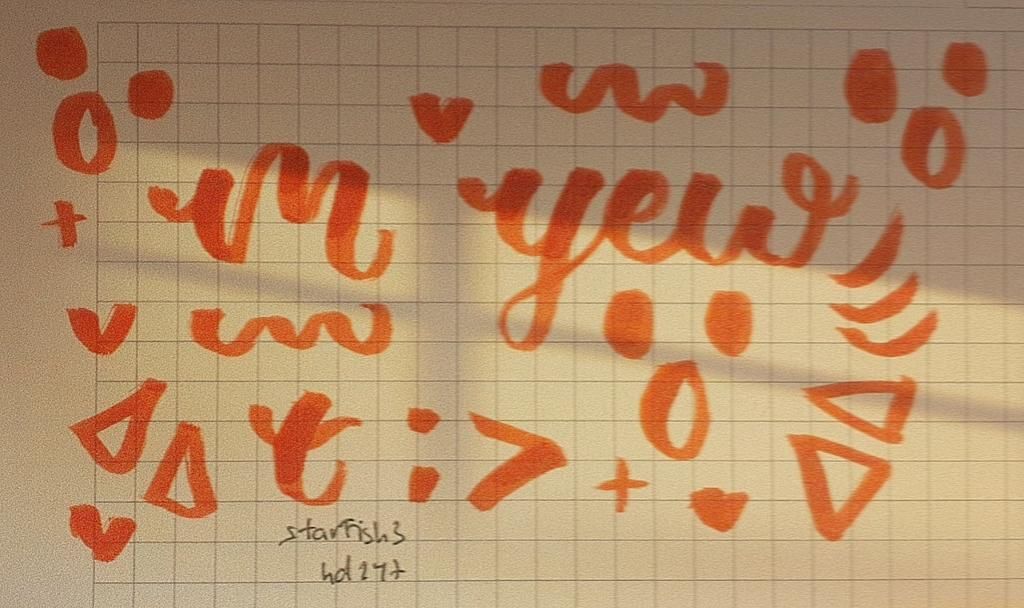 m yew
t :>
starfish3
hd27t